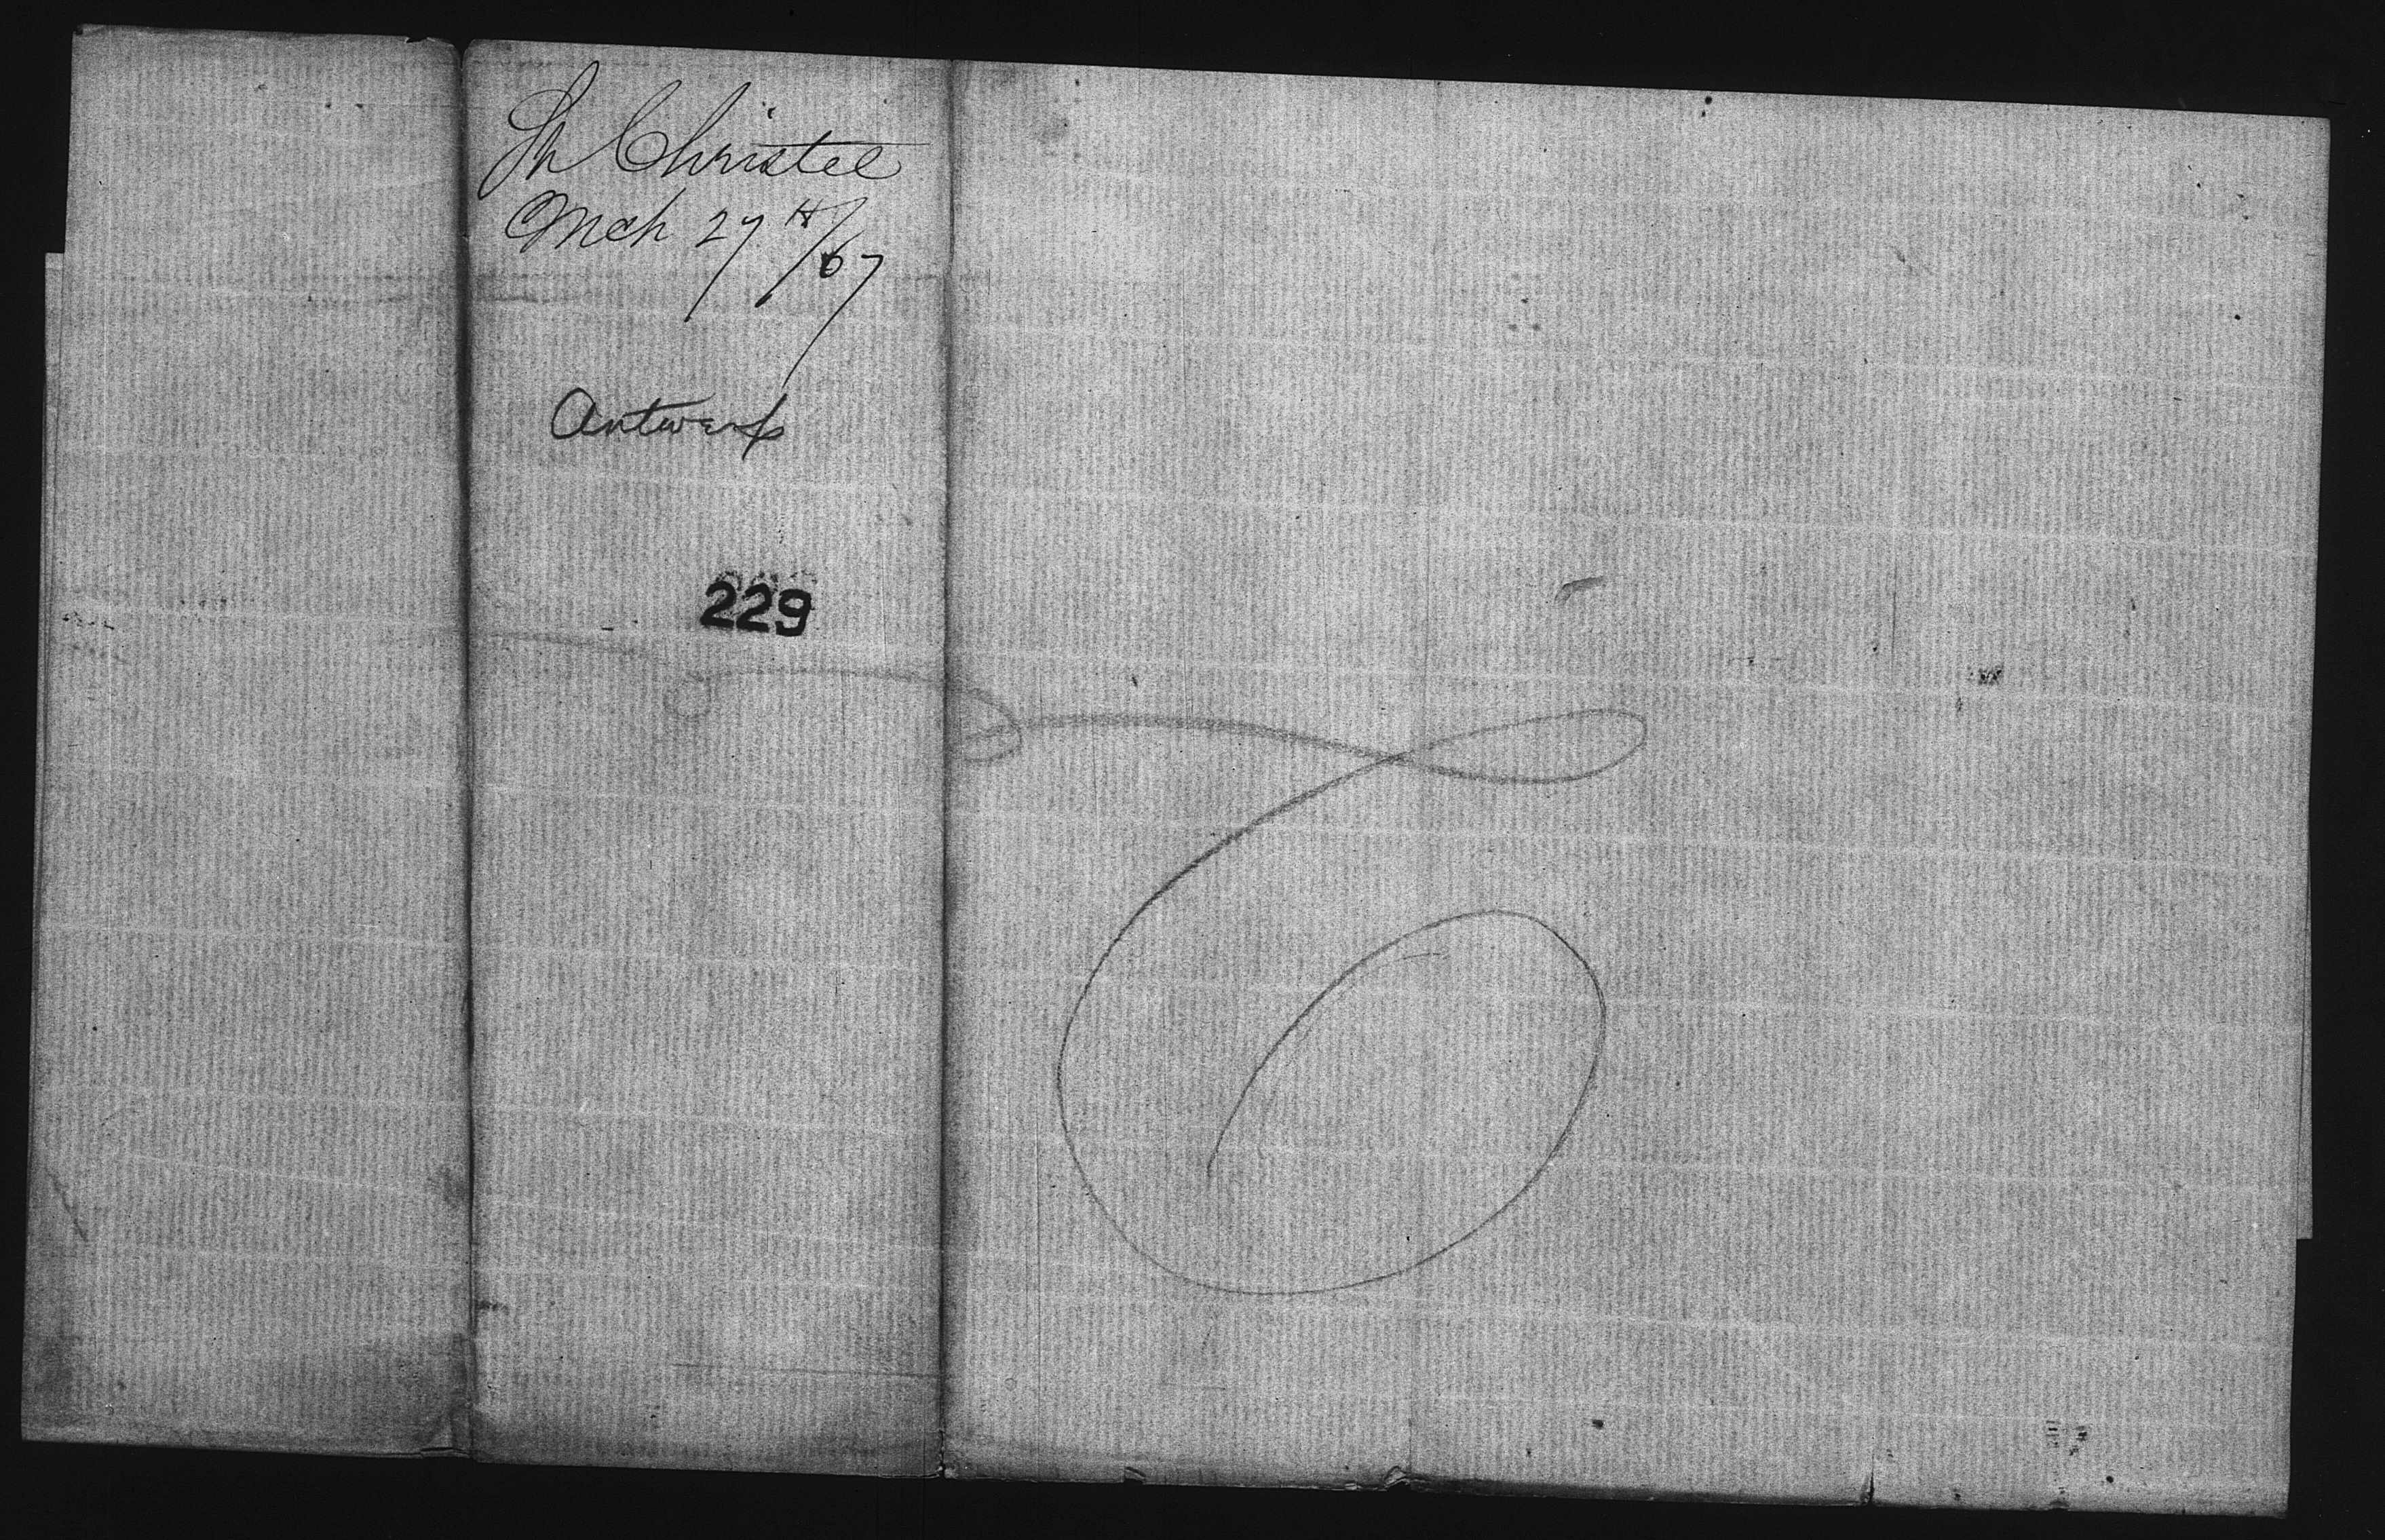 Sh Christel
Mch 27th/67
Antwerp
229